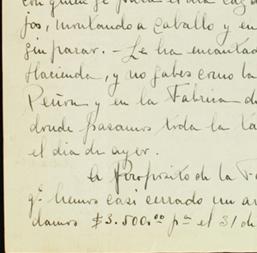 con quien se pasea el día caz
jos, montando a caballo y en
sin parar. - Le ha encantad
Hacienda, y no sabes como la
Peñon y en la Fabrica d
donde pasamos toda la ta
el dia de ayer.
A Proposito de la Fa
q.º hemos casi cerrado un ar
damos $3.500.00 p.ª el 31 de